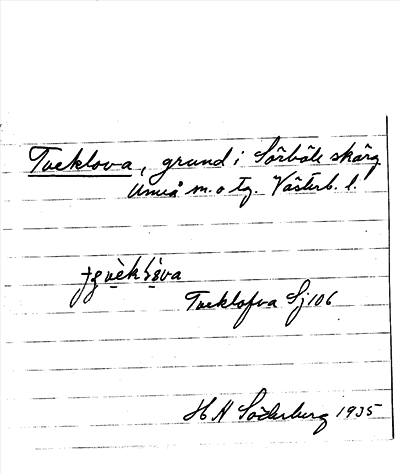 Tveklova, grund i Sörböle skärg.
Umeå m. o tg. Västerb. l.
Tveklofva Sj 106
H A Söderberg 1935